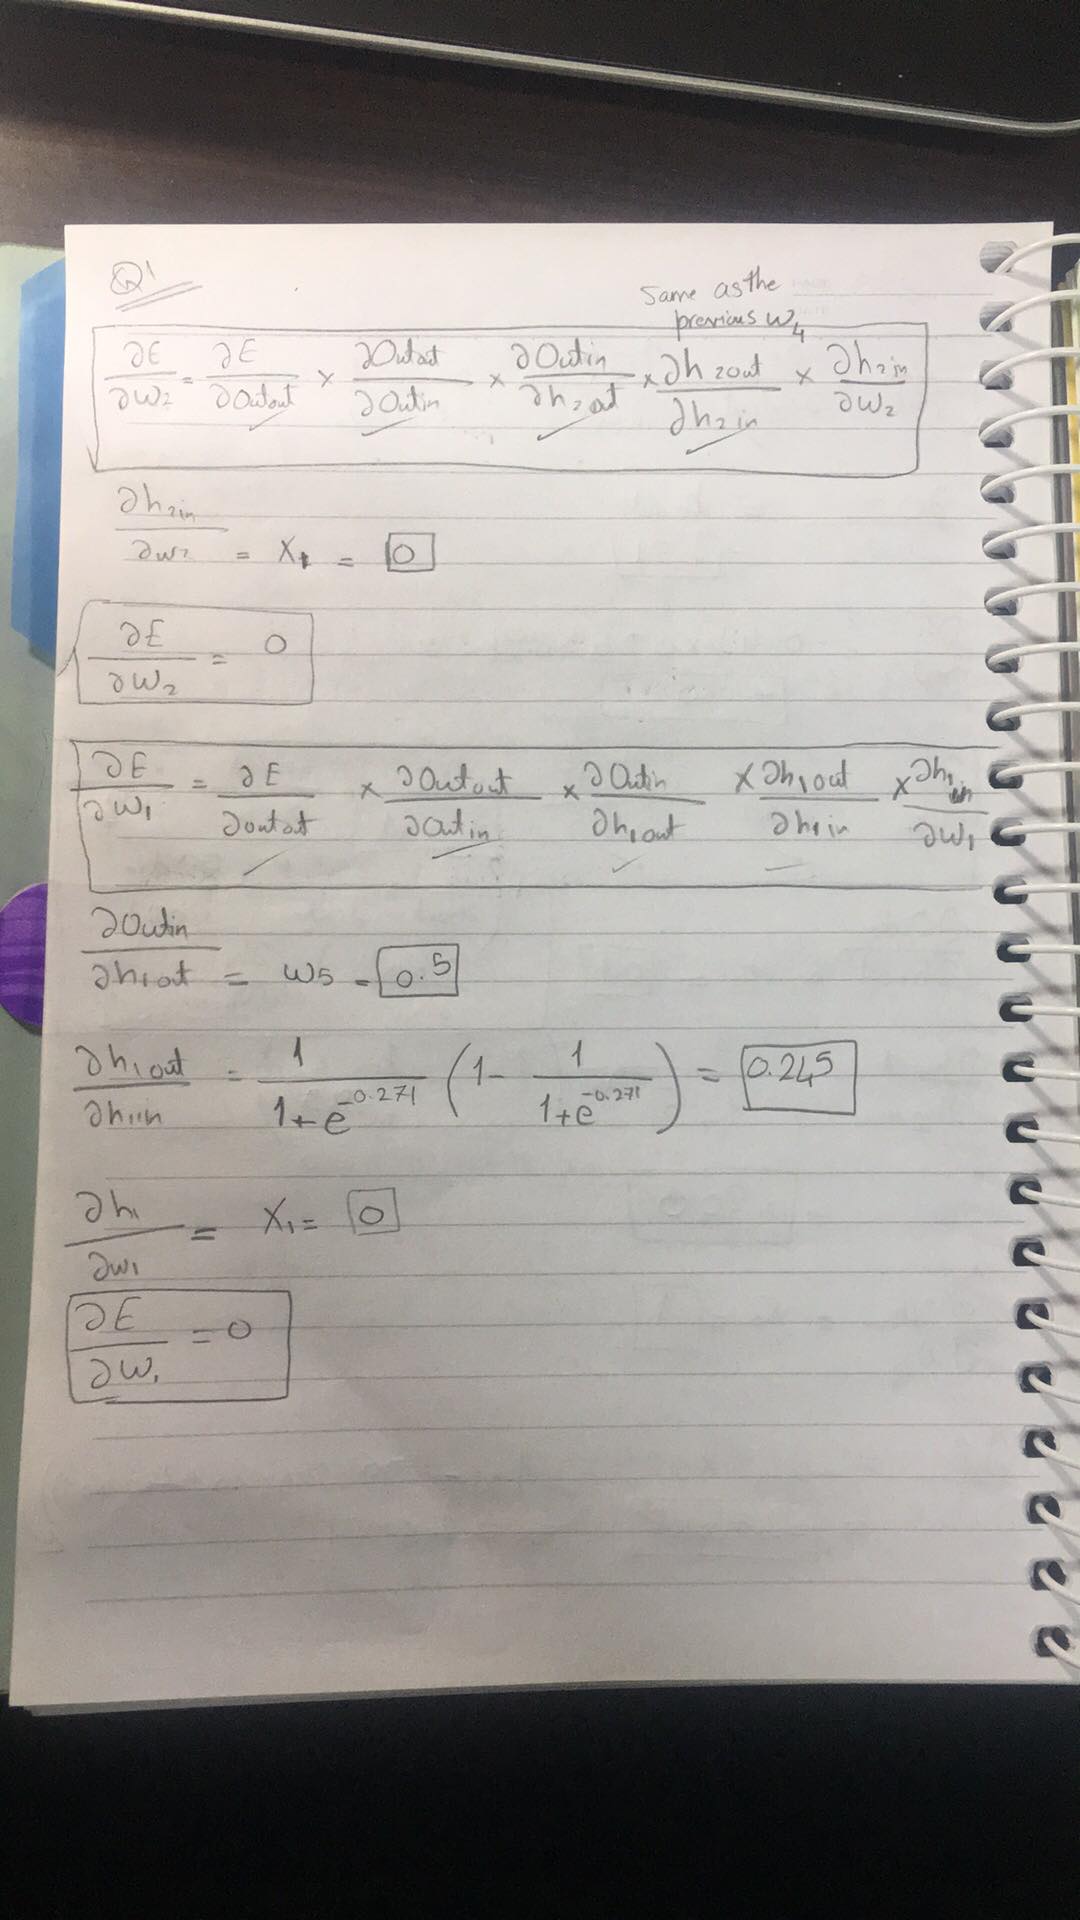 Q1
Same as the
previous w4
∂E/∂w2 = ∂E/∂Outout × ∂Outout/∂Outin × ∂Outin/∂h2out × ∂h2out/∂h2in × ∂h2in/∂w2
∂h2in/∂w2 = X1 = 0
∂E/∂w2 = 0
∂E/∂w1 = ∂E/∂outout × ∂Outout/∂Outin × ∂Outin/∂h1out × ∂h1out/∂h1in × ∂h1in/∂w1
∂Outin/∂h1out = w5 = 0.5
∂h1out/∂h1in = 1/(1+e^-0.271) (1 - 1/(1+e^-0.271)) = 0.245
∂h1/∂w1 = X1 = 0
∂E/∂w1 = 0